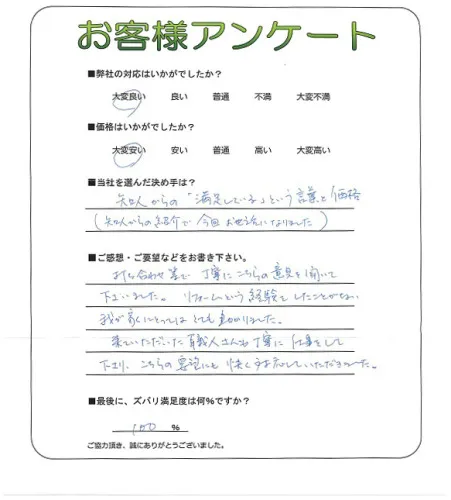 お客様アンケート
■弊社の対応はいかがでしたか？
大変良い 良い 普通 不満 大変不満
■価格はいかがでしたか？
大変安い 安い 普通 高い 大変高い
■当社を選んだ決め手は？
知人からの「満足している」という言葉と価格
(知人からの紹介で今回お世話になりました)
■ご感想・ご要望などをお書き下さい。
打ち合わせ等で丁寧にこちらの意見を聞いて
下さいました。リフォームという経験をしたことがない
我が家にとってはとても助かりました。
来ていただいた職人さんも丁寧に仕事をして
下さり、こちらの要望にも快く対応していただきました。
■最後に、ズバリ満足度は何%ですか？
100 %
ご協力頂き、誠にありがとうございました。